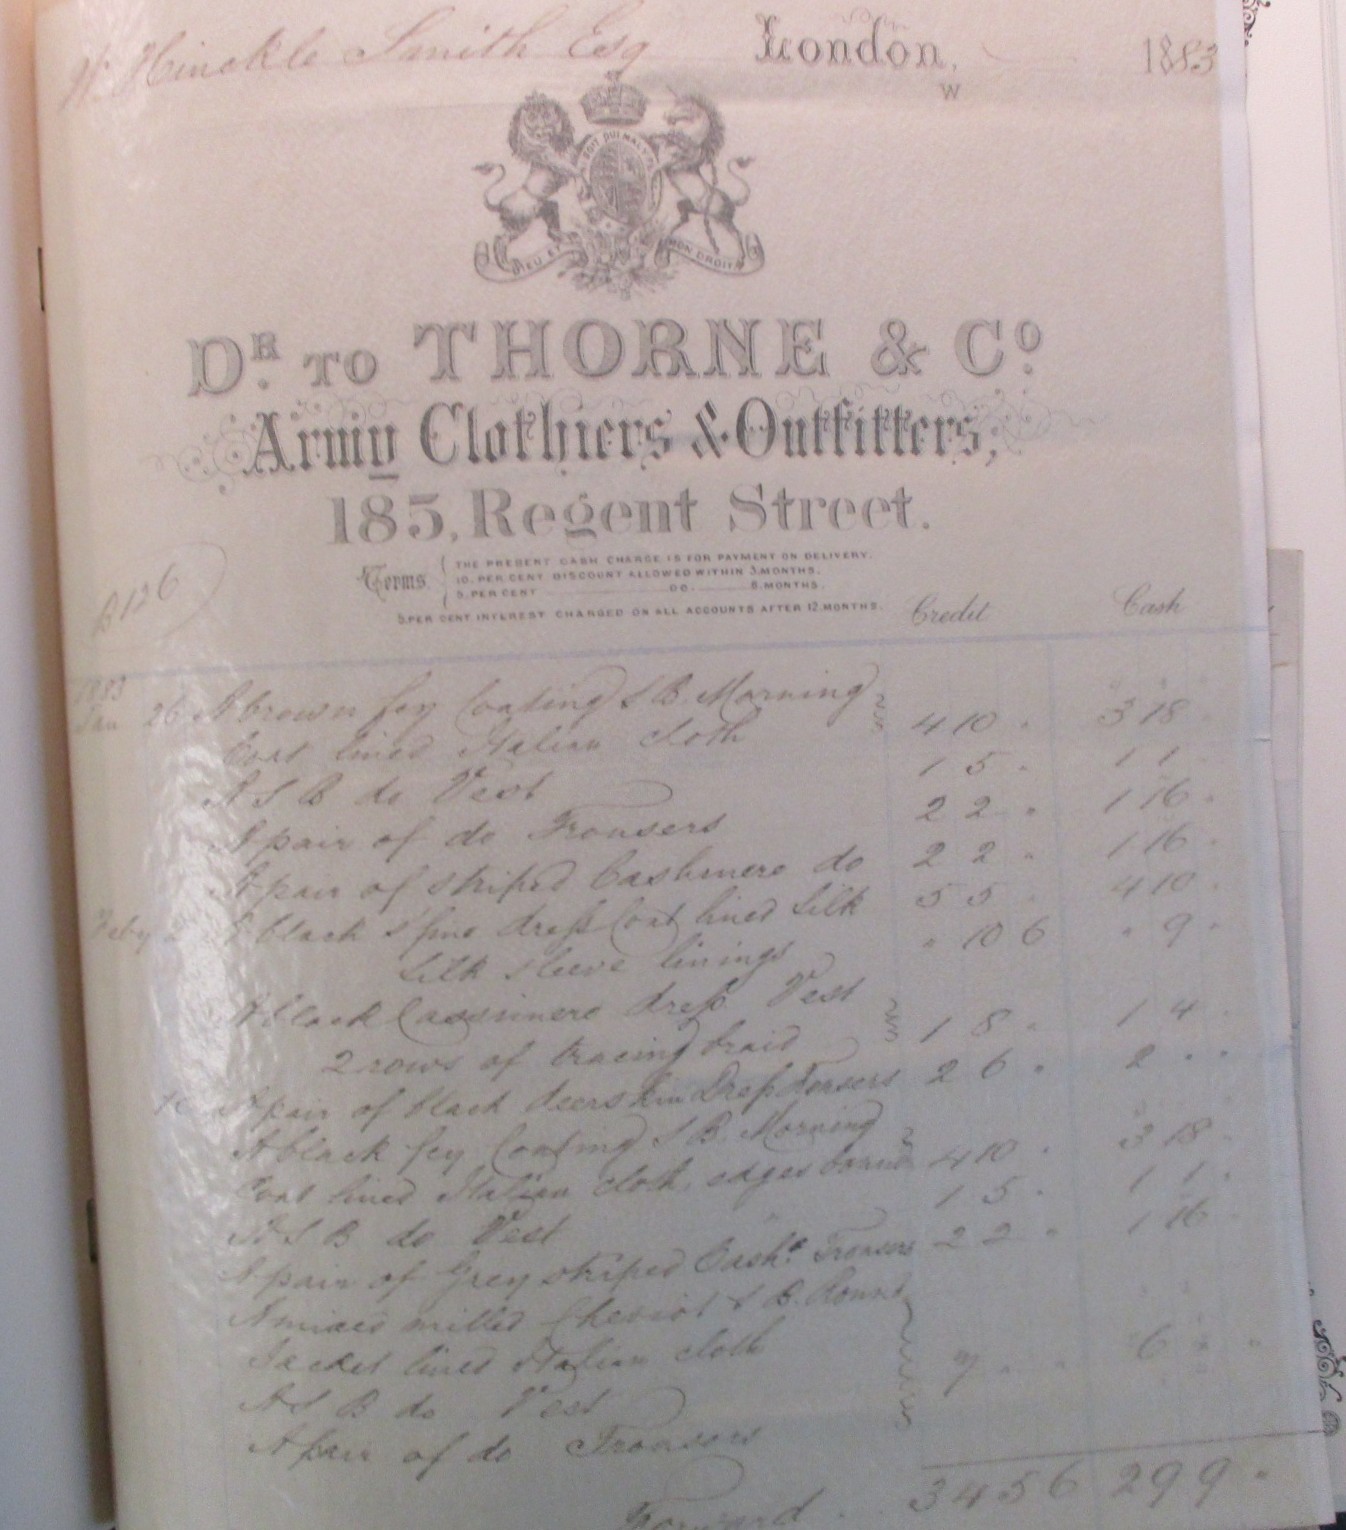 W. Hinckle Smith Esq London, 1883
W
SOIT QUI MAL Y
DIEU ET MON DROIT
DR. TO THORNE & CO.
Army Clothiers & Outfitters,
185, Regent Street.
Terms. THE PRESENT CASH CHARGE IS FOR PAYMENT ON DELIVERY.
10. PER CENT DISCOUNT ALLOWED WITHIN 3. MONTHS.
5. PER CENT DO. 6. MONTHS.
5. PER CENT INTEREST CHARGED ON ALL ACCOUNTS AFTER 12. MONTHS.
Credit Cash
B126
1883
Jan 26 A brown fcy Coating S B Morning
Coat lined Italian Cloth 4 10 " 3 18 "
A S B do Vest 1 5 " 1 1 "
A pair of do Trousers 2 2 " 1 16 "
A pair of striped Cashmere do 2 2 " 1 16 "
Feby 2 A black Sfine dress Coat lined Silk 5 5 " 4 10 "
Silk sleeve linings " 10 6 " 9 "
A black Cassimere dress Vest
2 rows of tracing braid 1 8 " 1 4 "
A pair of black deerskin Dress Trousers 2 6 " 2 " "
A black fcy Coating S B Morning
Coat lined Italian Cloth, edges bound 4 10 " 3 18 "
A S B do Vest 1 5 " 1 1 "
A pair of Grey striped Cashe. Trousers 2 2 " 1 16 "
A mixed milled Cheviot S B. Round
Jacket lined Italian Cloth
A S B do Vest 7 " " 6 " "
A pair of do Trousers
Forward 34 5 6 29 9 "